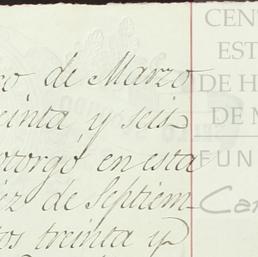 co de Marzo
einta y seis
otorgo en esta
ez de Septiem-
os treinta y
CEN
EST
DE H
DE M
FUN
Car